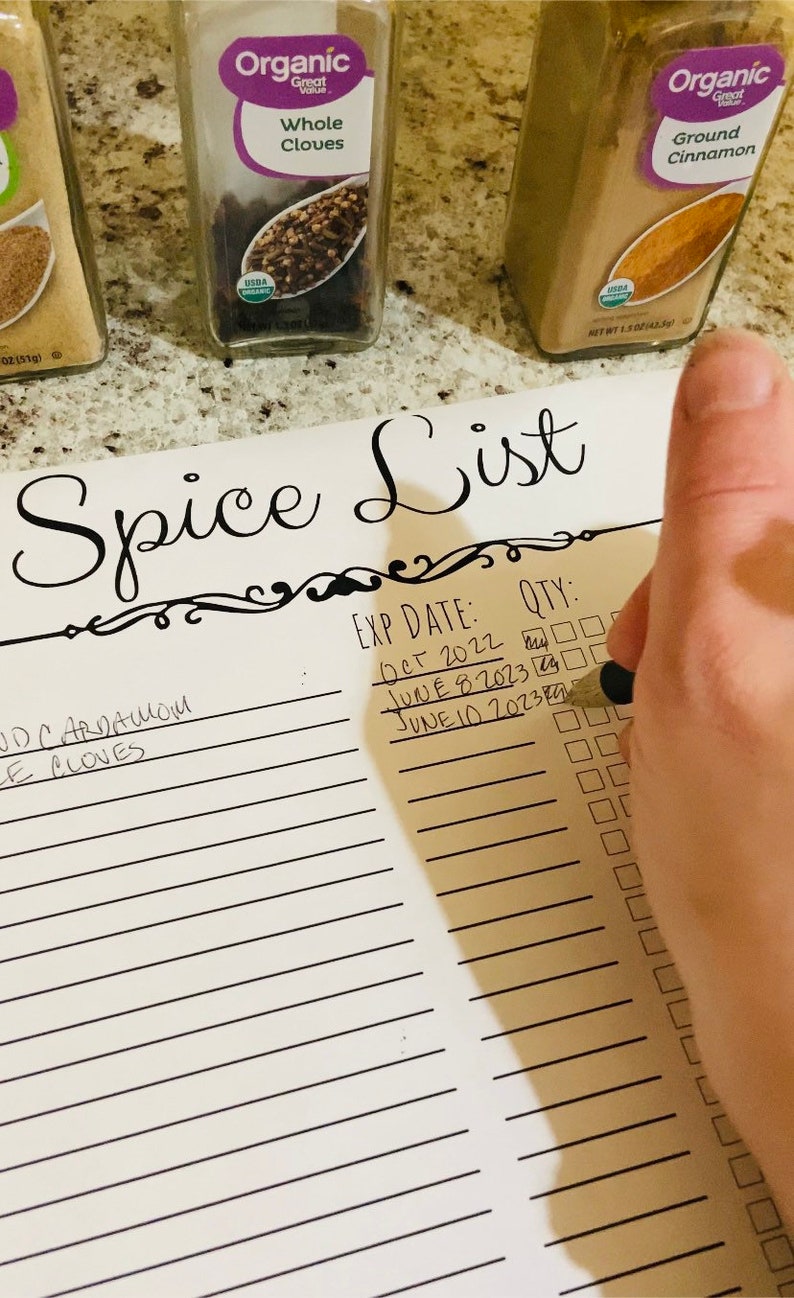 Organic
Great
Value
Whole
Cloves
USDA
ORGANIC
Organic
Great
Value
Ground
Cinnamon
USDA
ORGANIC
NET WT 1.5 OZ (42.5g)
OZ (51g)
Spice List
EXP DATE: QTY:
OCT 2022
JUNE 8 2023
CARDAMOM JUNE 10 2023
CLOVES